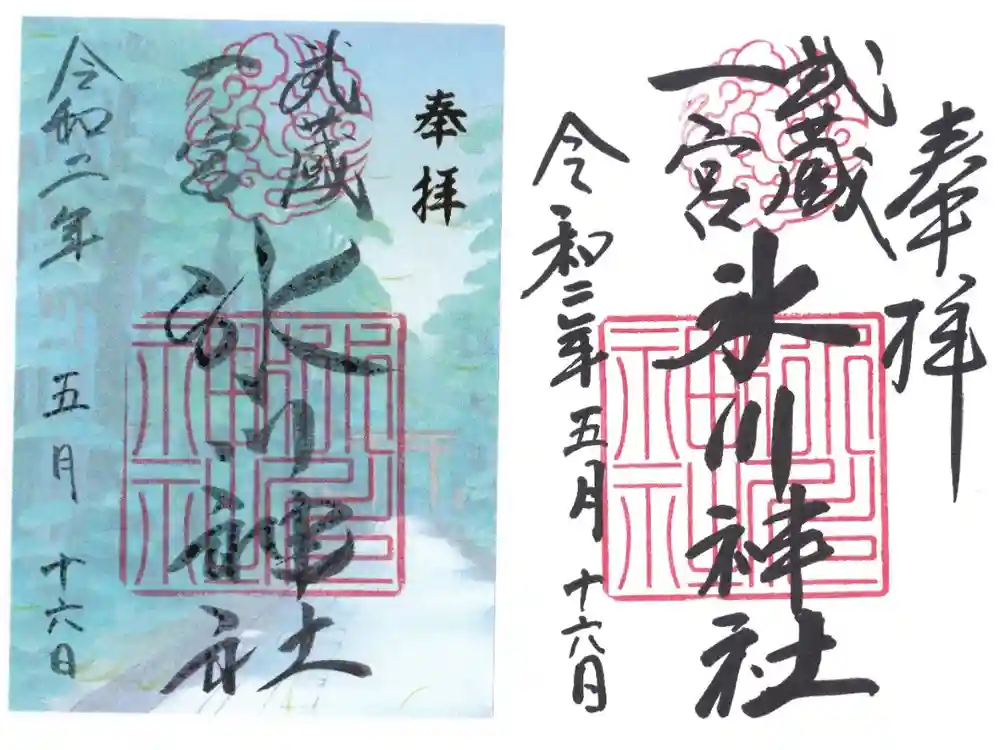 奉拝
武蔵
一宮
氷川神社
令和二年 五月 十六日
奉拝
武蔵
一宮
氷川神社
令和二年 五月 十六日